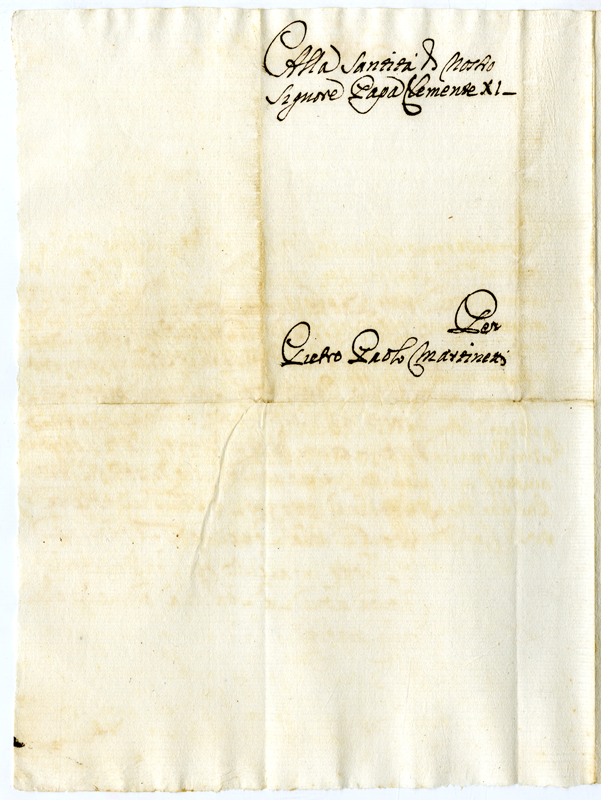 Alla Santità di Nostro
Signore Papa Clemente XI
Per
Pietro Paolo Martinetti